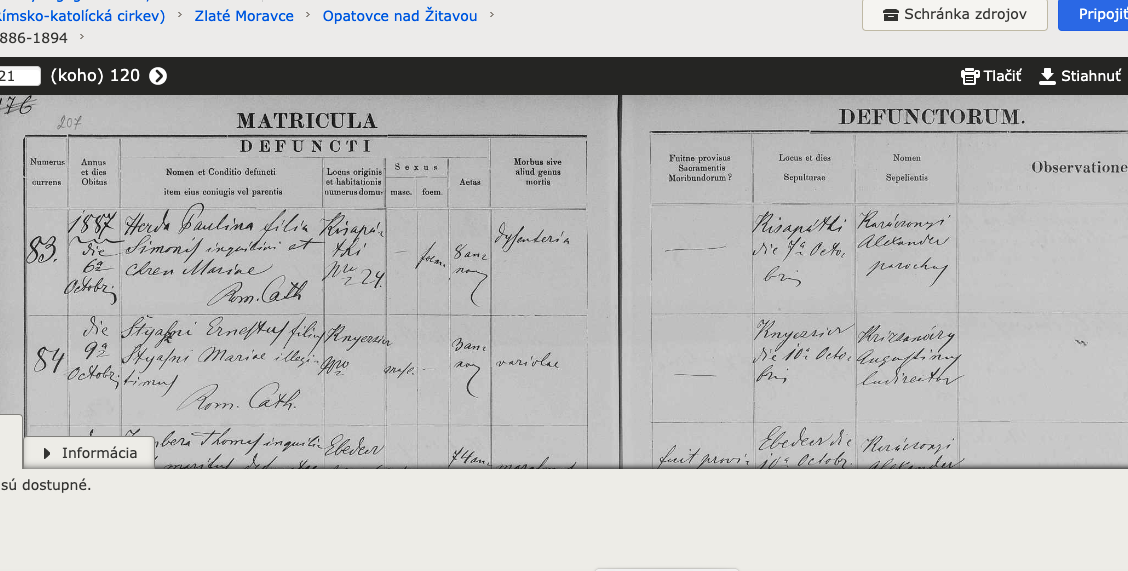 ímsko-katolícká cirkev) › Zlaté Moravce › Opatovce nad Žitavou ›
886-1894 ›
Schránka zdrojov
Pripojiť
21 (koho) 120
Tlačiť
Stiahnuť
176
207
MATRICULA
DEFUNCTORUM.
DEFUNCTI
Numerus
currens
Annus
et dies
Obitus
Nomen et Conditio defuncti
item eius coniugis vel parentis
Locus originis
et habitationis
numerus domus
Sexus
masc.
foem.
Aetas
Morbus sive
aliud genus
mortis
Fuitne provisus
Sacramentis
Moribundorum?
Locus et dies
Sepulturae
Nomen
Sepelientis
Observatione
83.
1887
die
6a
Octobris
Herda Paulina filia
Simonis inquilini et
Mariae
Rom. Cath
Kisapá-
thi
Nro 24.
–
foem.
8 an-
norum
dysenteria
Kisapáthi
die 7a Octo-
bris
Karácsonyi
Alexander
parochus
84
die
9a
Octobris
Styasni Ernestus filius
Styasni Mariae illegi-
timus
Rom. Cath.
Knyezsicz
Nro
masc.
-
3 an-
norum
variolae
Knyezsicz
die 10a Octo-
bris
Augustinus
ludirector
Thomas inquili
Ebedecz
74 an
fuit provi-
Ebedecz die
Octobr.
Karácsonyi
Alexander
Informácia
sú dostupné.